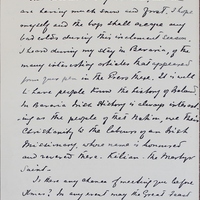 are having much snow and frost. I hope
myself and the boys shall escape any
bad colds during this inclement season.
I heard during my stay in Bavaria, of the
many interesting articles that appeared
from your pen in The Press there. It is well
to have people know the history of Ireland.
In Bavaria Irish History is always interest-
ing as the people of that Nation, owe their
Christianity to the labours of an Irish
Missionary, whose name is honoured
and revered there. Kilian - the Martyr
Saint -
Is there any chance of meeting you before
Xmas? In any event may the Great Feast